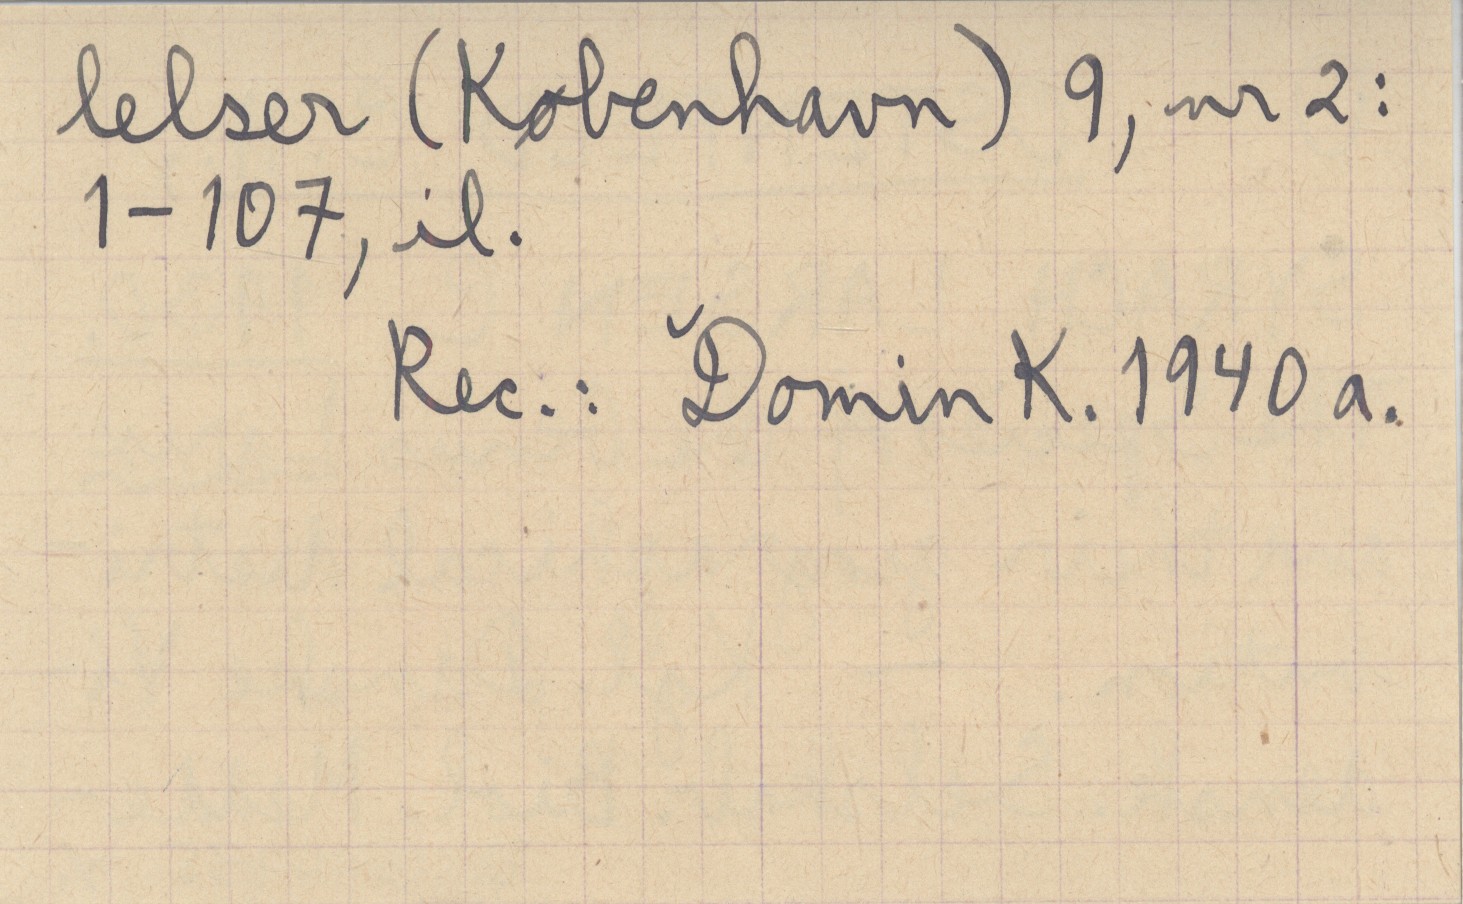 lelser (København) 9, nr 2:
1-107, il.
Rec.: Domin K. 1940 a.